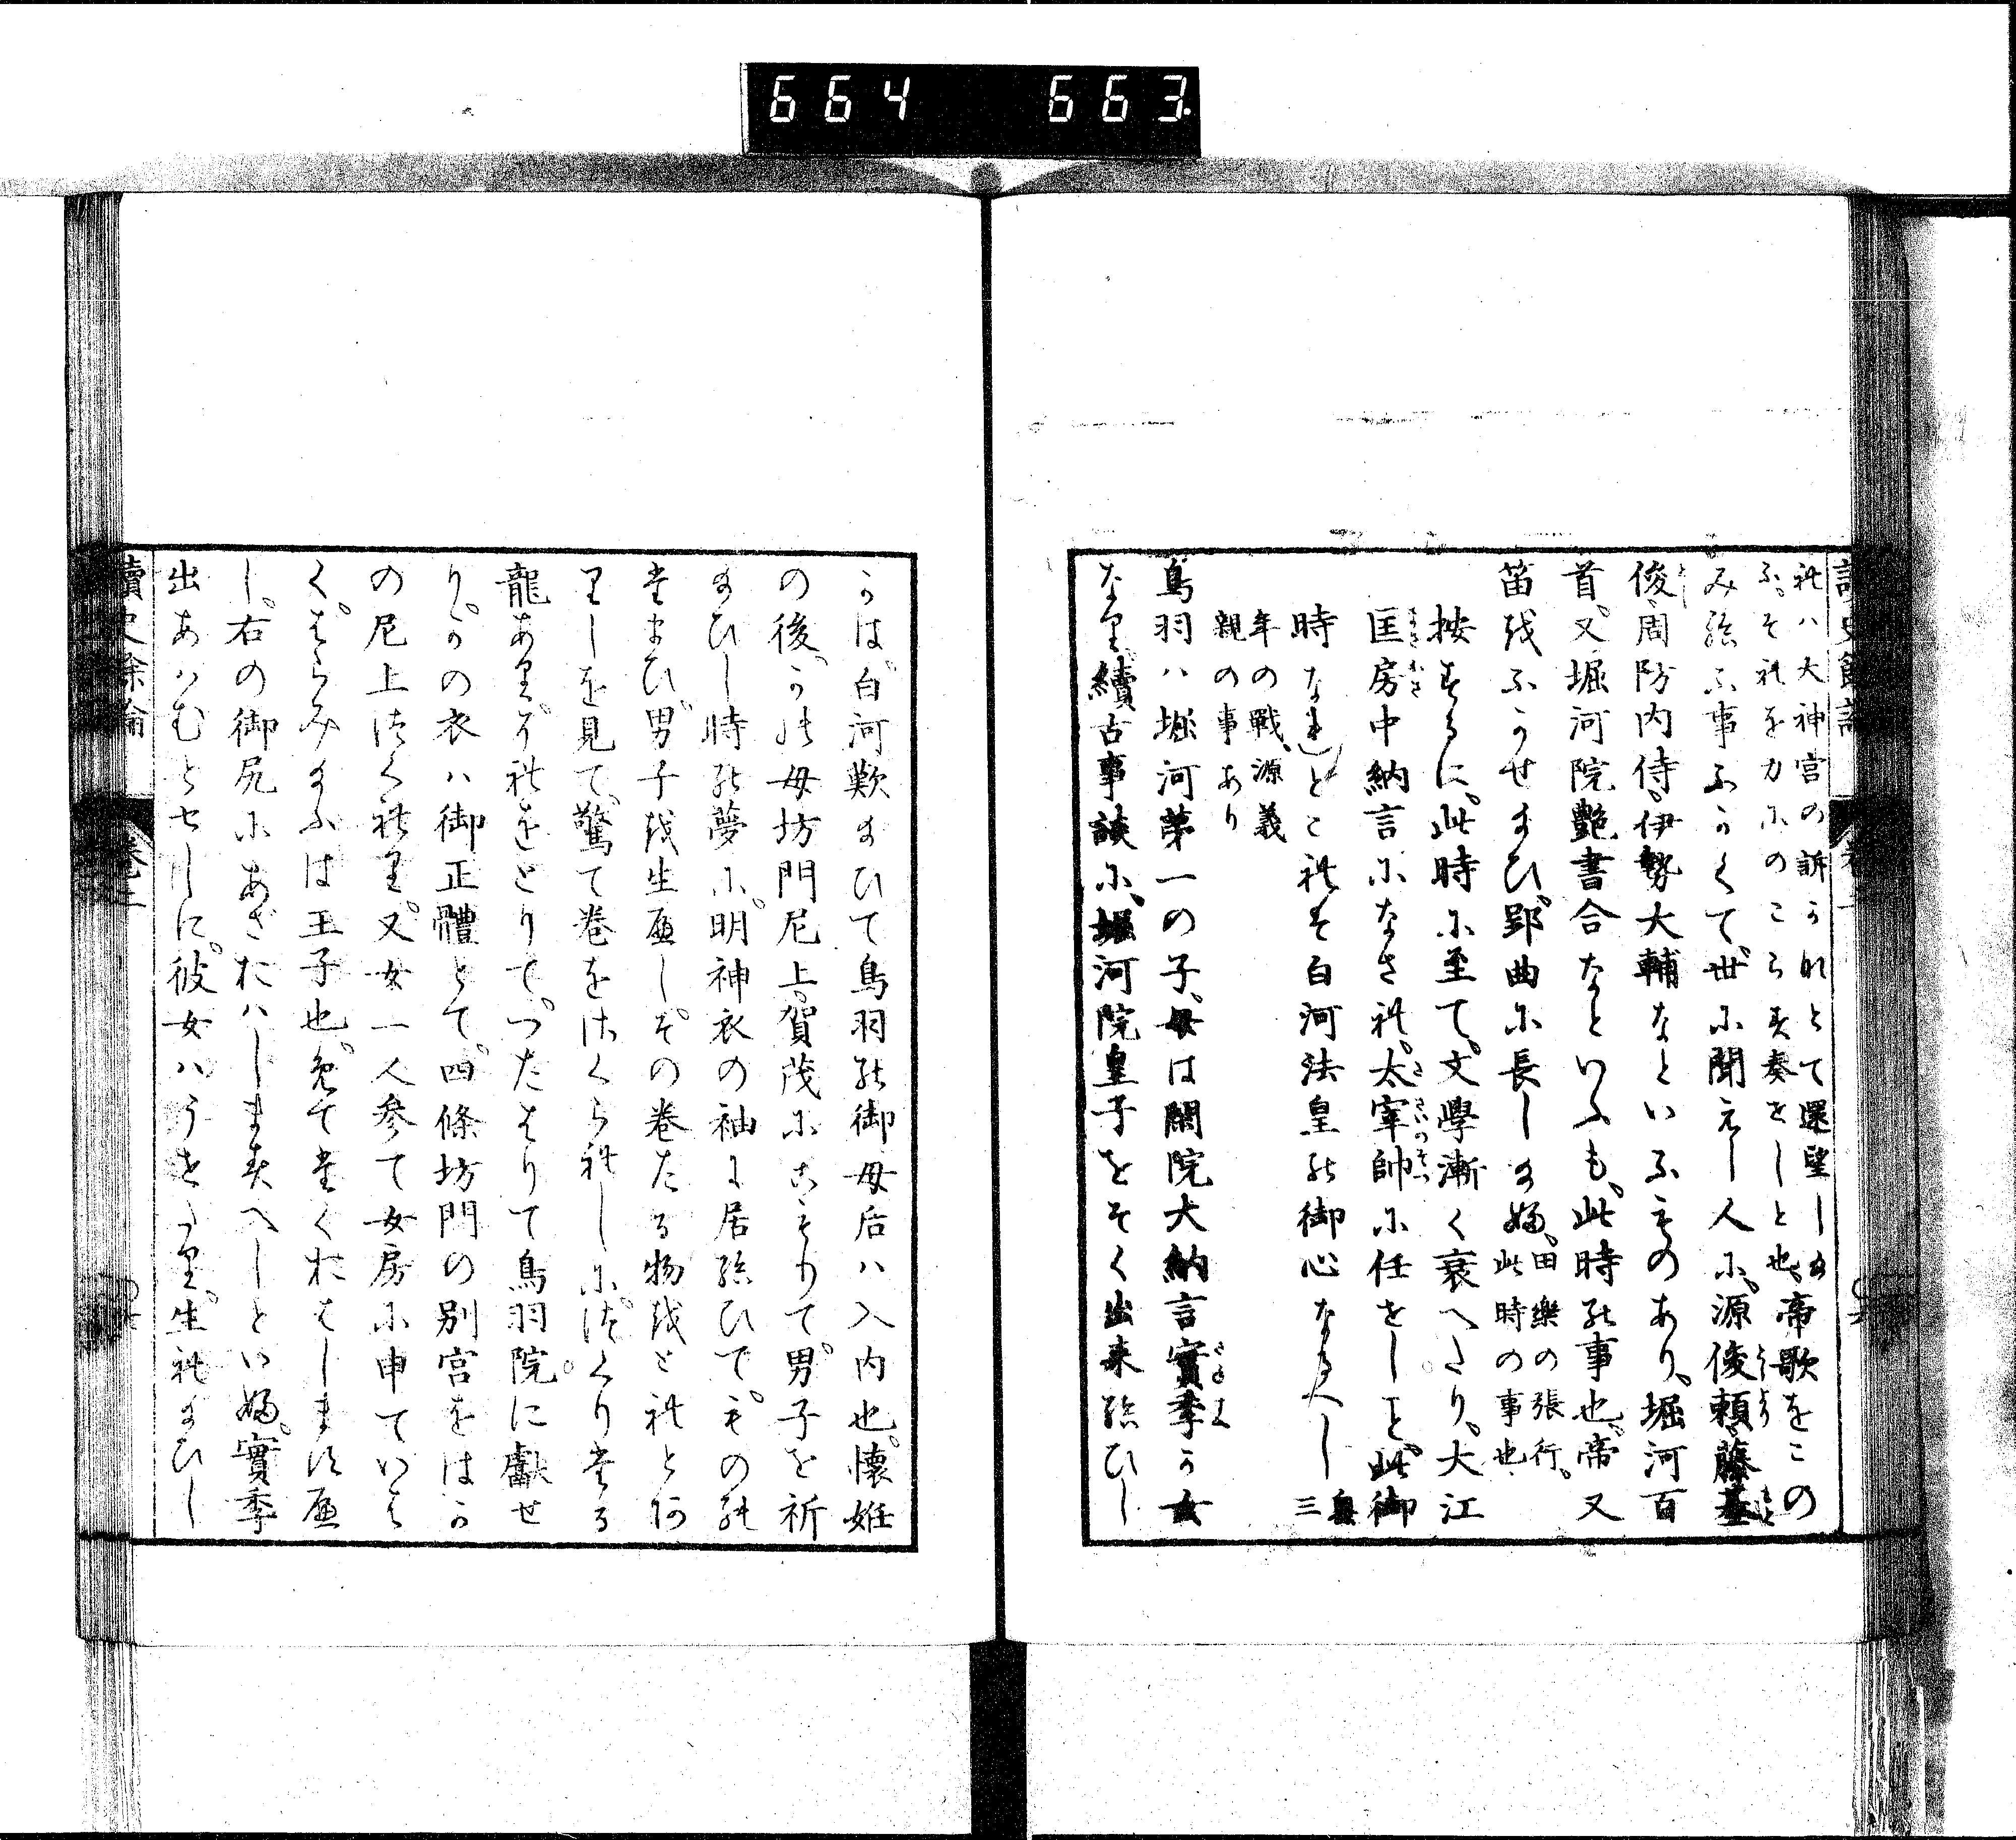 664 663
讀史餘論 卷二
れハ大神宮の訴うれとて還望しめ
ふ。それを力にのこらす奏をしと也。帝歌をこの
み給ふ事ふかくて。世に聞えし人に。源俊頼。藤基
俊。周防内侍。伊勢大輔なといふものあり。堀河百
首。又堀河院艶書合なといふも。此時の事也。帝又
笛をふかせ給ひ。郢曲に長し給ふ。田樂の張行。
此時の事也
按するに。此時に至て。文學漸く衰へたり。大江
匡房中納言になされ。太宰帥に任をしを。此御
時なれとこれを白河法皇の御心なるへし
奥三
年の戰。源義
親の事あり
鳥羽ハ堀河第一の子。母は閑院大納言實季か女
なり。續古事談に。堀河院皇子をそく出来給ひし
かは。白河歎給ひて鳥羽の御母后ハ入内也。懷姙
の後。かの母坊門尼上。賀茂にこもりて。男子を祈
給ひし時の夢に。明神衣の袖に居給ひて。その後
たまひ。男子を生へし。その巻たる物をとれとあ
りしを見て。驚て巻をはくられしに。はくりたる
龍あり。それをとりて。つたはりて鳥羽院に獻せ
り。かの衣ハ御正體とて。四條坊門の別宮をはか
の尼上はくれり。又女一人参て女房に申ていはく
く。はらみ給ふは王子也。めてたくおはしますへ
し。右の御尻にあざおハしますへしといふ。實季
出あハむとせしに。彼女ハうせたり。生れ給ひし
讀史餘論 卷二